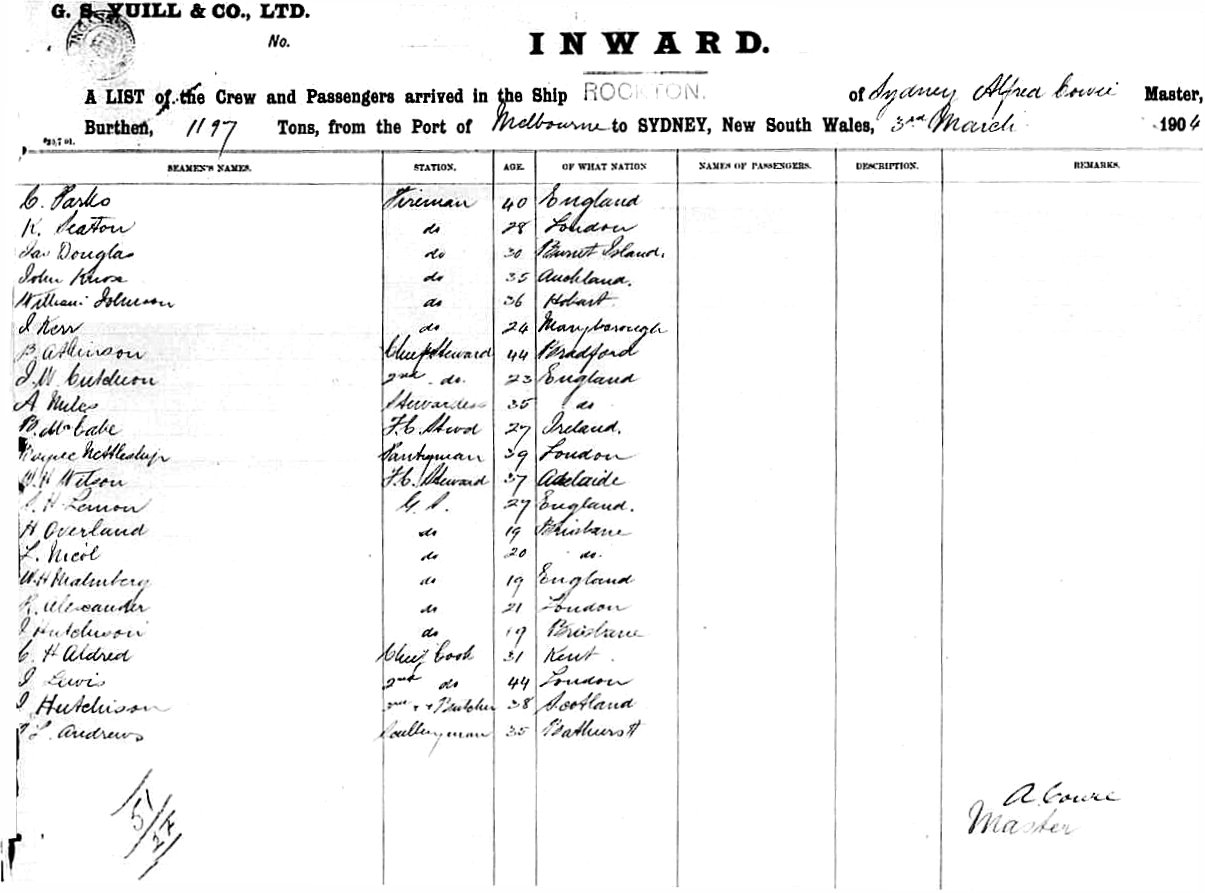 G. S. YUILL & CO., LTD.
No.
INWARD.
A LIST of the Crew and Passengers arrived in the Ship ROCKTON. of Sydney Alfred Cowie Master,
Burthen, 1197 Tons, from the Port of Melbourne to SYDNEY, New South Wales, 3rd March 1904
SEAMEN'S NAMES. STATION. AGE. OF WHAT NATION NAMES OF PASSENGERS. DESCRIPTION. REMARKS.
C. Parks Fireman 40 England
K. Seaton do 28 London
Jas Douglas do 30 Island.
John Knox do 35 Auckland.
William Johnson do 36 Hobart
J Kerr do 24 Maryborough
B Atkinson Chief Steward 44 Bradford
J. W. Cutcheon 2nd do. 23 England
A Miles Stewardess 35 do
B. McCabe F. C. Stwd 27 Ireland.
Nettleship Pantryman 39 London
W. H Wilson F. C. Steward 37 Adelaide
S. H Lemon G. S. 27 England.
H Overland do 19 Brisbane
L. Nicol do 20 do.
W. H Malmberg do 19 England
R. Alexander do 21 London
J Hutchison do 19 Brisbane
C. H Aldred Chief Cook 31 Kent.
J Lewis 2nd do 44 London
J Hutchison 2nd + + Butcher 38 Scotland
L. Andrews Sculleryman 35 Bathurst
51/27
A. Cowie
Master